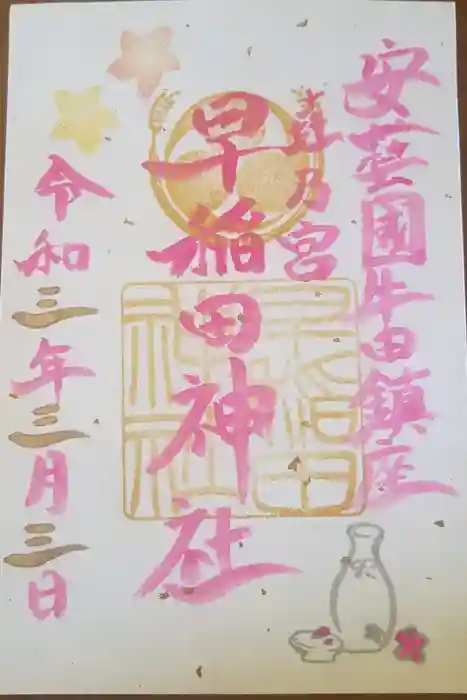 安芸国牛田鎮座
幸乃宮
早稲田神社
令和三年三月三日
早稲田神社